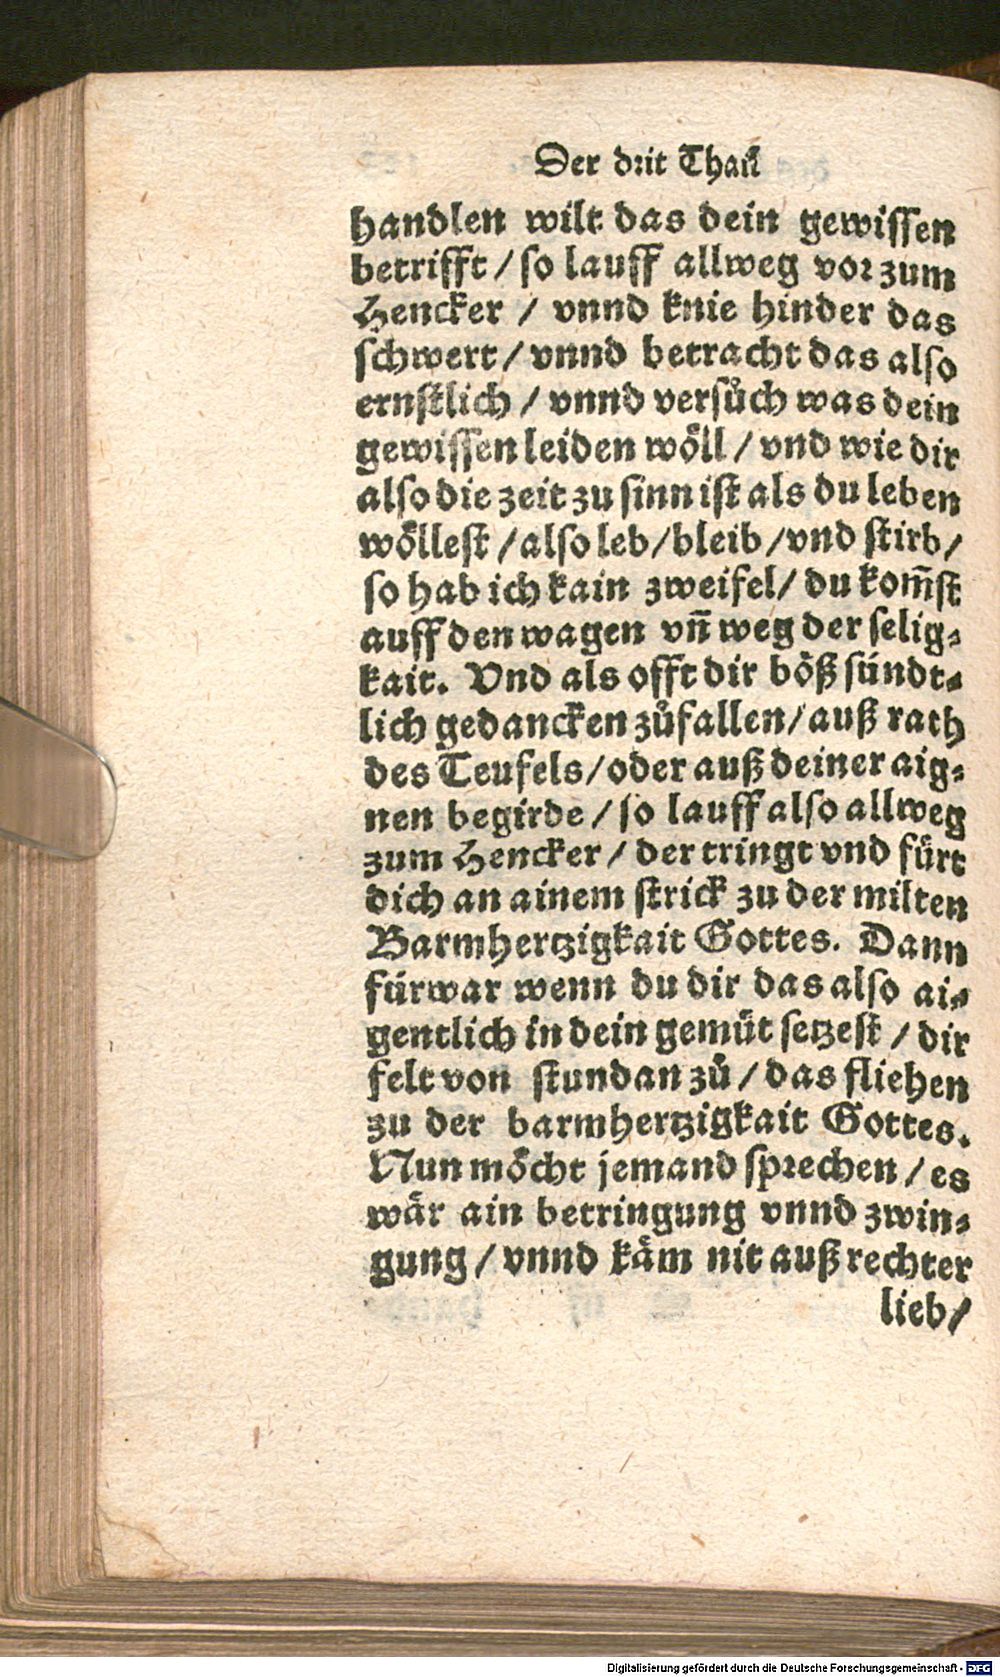 Der drit Thail
handlen wilt das dein gewissen
betrifft / so lauff allweg vor zum
Hencker / vnnd knie hinder das
schwert / vnnd betracht das also
ernstlich / vnnd versůch was dein
gewissen leiden wöll / vnd wie dir
also die zeit zu sinn ist als du leben
wöllest / also leb / bleib / vnd stirb /
so hab ich kain zweifel / du kom̃st
auff den wagen vñ weg der selig⸗
kait. Vnd als offt dir böß sündt⸗
lich gedancken zůfallen / auß rath
des Teufels / oder auß deiner aig⸗
nen begirde / so lauff also allweg
zum Hencker / der tringt vnd fürt
dich an ainem strick zu der milten
Barmhertzigkait Gottes. Dann
fürwar wenn du dir das also ai⸗
gentlich in dein gemüt setzest / dir
felt von stundan zů / das fliehen
zu der barmhertzigkait Gottes.
Nun möcht jemand sprechen / es
wär ain betringung vnnd zwin⸗
gung / vnnd käm nit auß rechter
lieb /
Digitalisierung gefördert durch die Deutsche Forschungsgemeinschaft - DFG